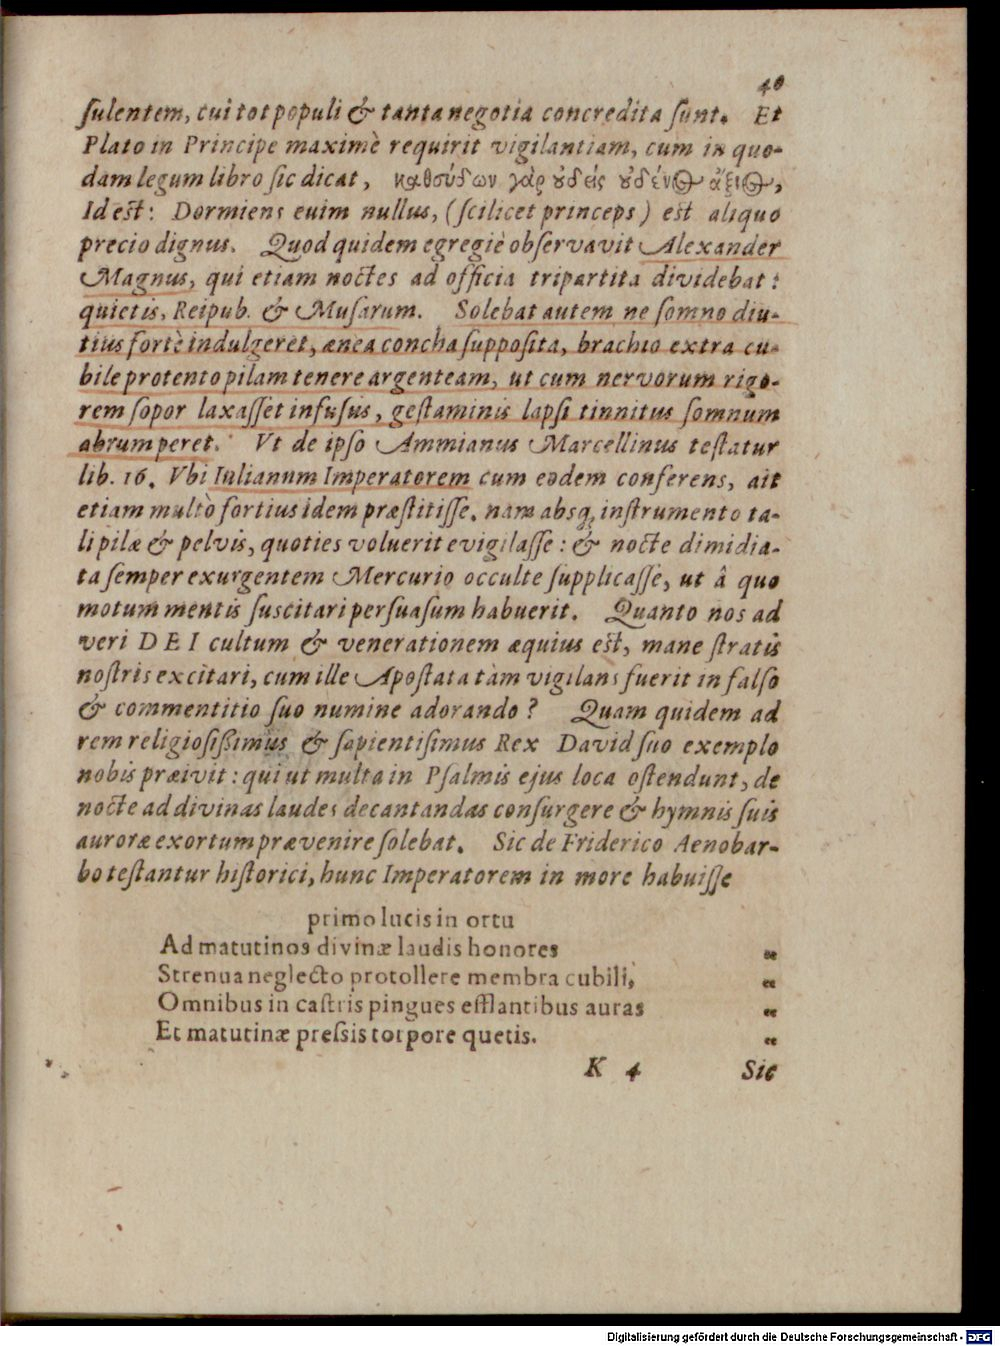 40
ſulentem, cui tot populi & tanta negotia concredita ſunt. Et
Plato in Principe maximè requirit vigilantiam, cum in quo-
dam legum libro ſic dicat, καθσύδων γὰρ ȣ̓δεὶς ȣ̓δένος ἄξιος,
Id eſt: Dormiens euim nullus, (ſcilicet princeps) eſt aliquo
precio dignus. Quod quidem egregiè obſervavit Alexander
Magnus, qui etiam noctes ad officia tripartita dividebat:
quietis, Reipub. & Muſarum. Solebat autem ne ſomno diu-
tius fortè indulgeret, ænea concha ſuppoſita, brachio extra cu-
bile protento pilam tenere argenteam, ut cum nervorum rigo-
rem ſopor laxaſſet infuſus, geſtaminis lapſi tinnitus ſomnum
abrumperet. Vt de ipſo Ammianus Marcellinus teſtatur
lib. 16. Vbi Iulianum Imperatorem cum eodem conferens, ait
etiam multò fortius idem præſtitiſſe. nam absq; inſtrumento ta-
li pilæ & pelvis, quoties voluerit evigilaſſe: & nocte dimidia-
ta ſemper exurgentem Mercurio occulte ſupplicaſſe, ut â quo
motum mentis ſuscitari perſuaſum habuerit. Quanto nos ad
veri DEI cultum & venerationem æquius eſt, mane ſtratis
noſtris excitari, cum ille Apoſtata tàm vigilans fuerit in falſo
& commentitio ſuo numine adorando? Quam quidem ad
rem religioſiſſimus & ſapientiſimus Rex David ſuo exemplo
nobis præivit: qui ut multa in Pſalmis ejus loca oſtendunt, de
nocte ad divinas laudes decantandas conſurgere & hymnis ſuis
auroræ exortum prævenire ſolebat. Sic de Friderico Aenobar-
bo teſtantur hiſtorici, hunc Imperatorem in more habuiſſe
primo lucis in ortu
Ad matutinos divinæ laudis honores “
Strenua neglecto protollere membra cubili, “
Omnibus in caſtris pingues efflantibus auras “
Et matutinæ preſsis torpore quetis. “
K 4 Sic
Digitalisierung gefördert durch die Deutsche Forschungsgemeinschaft - DFG